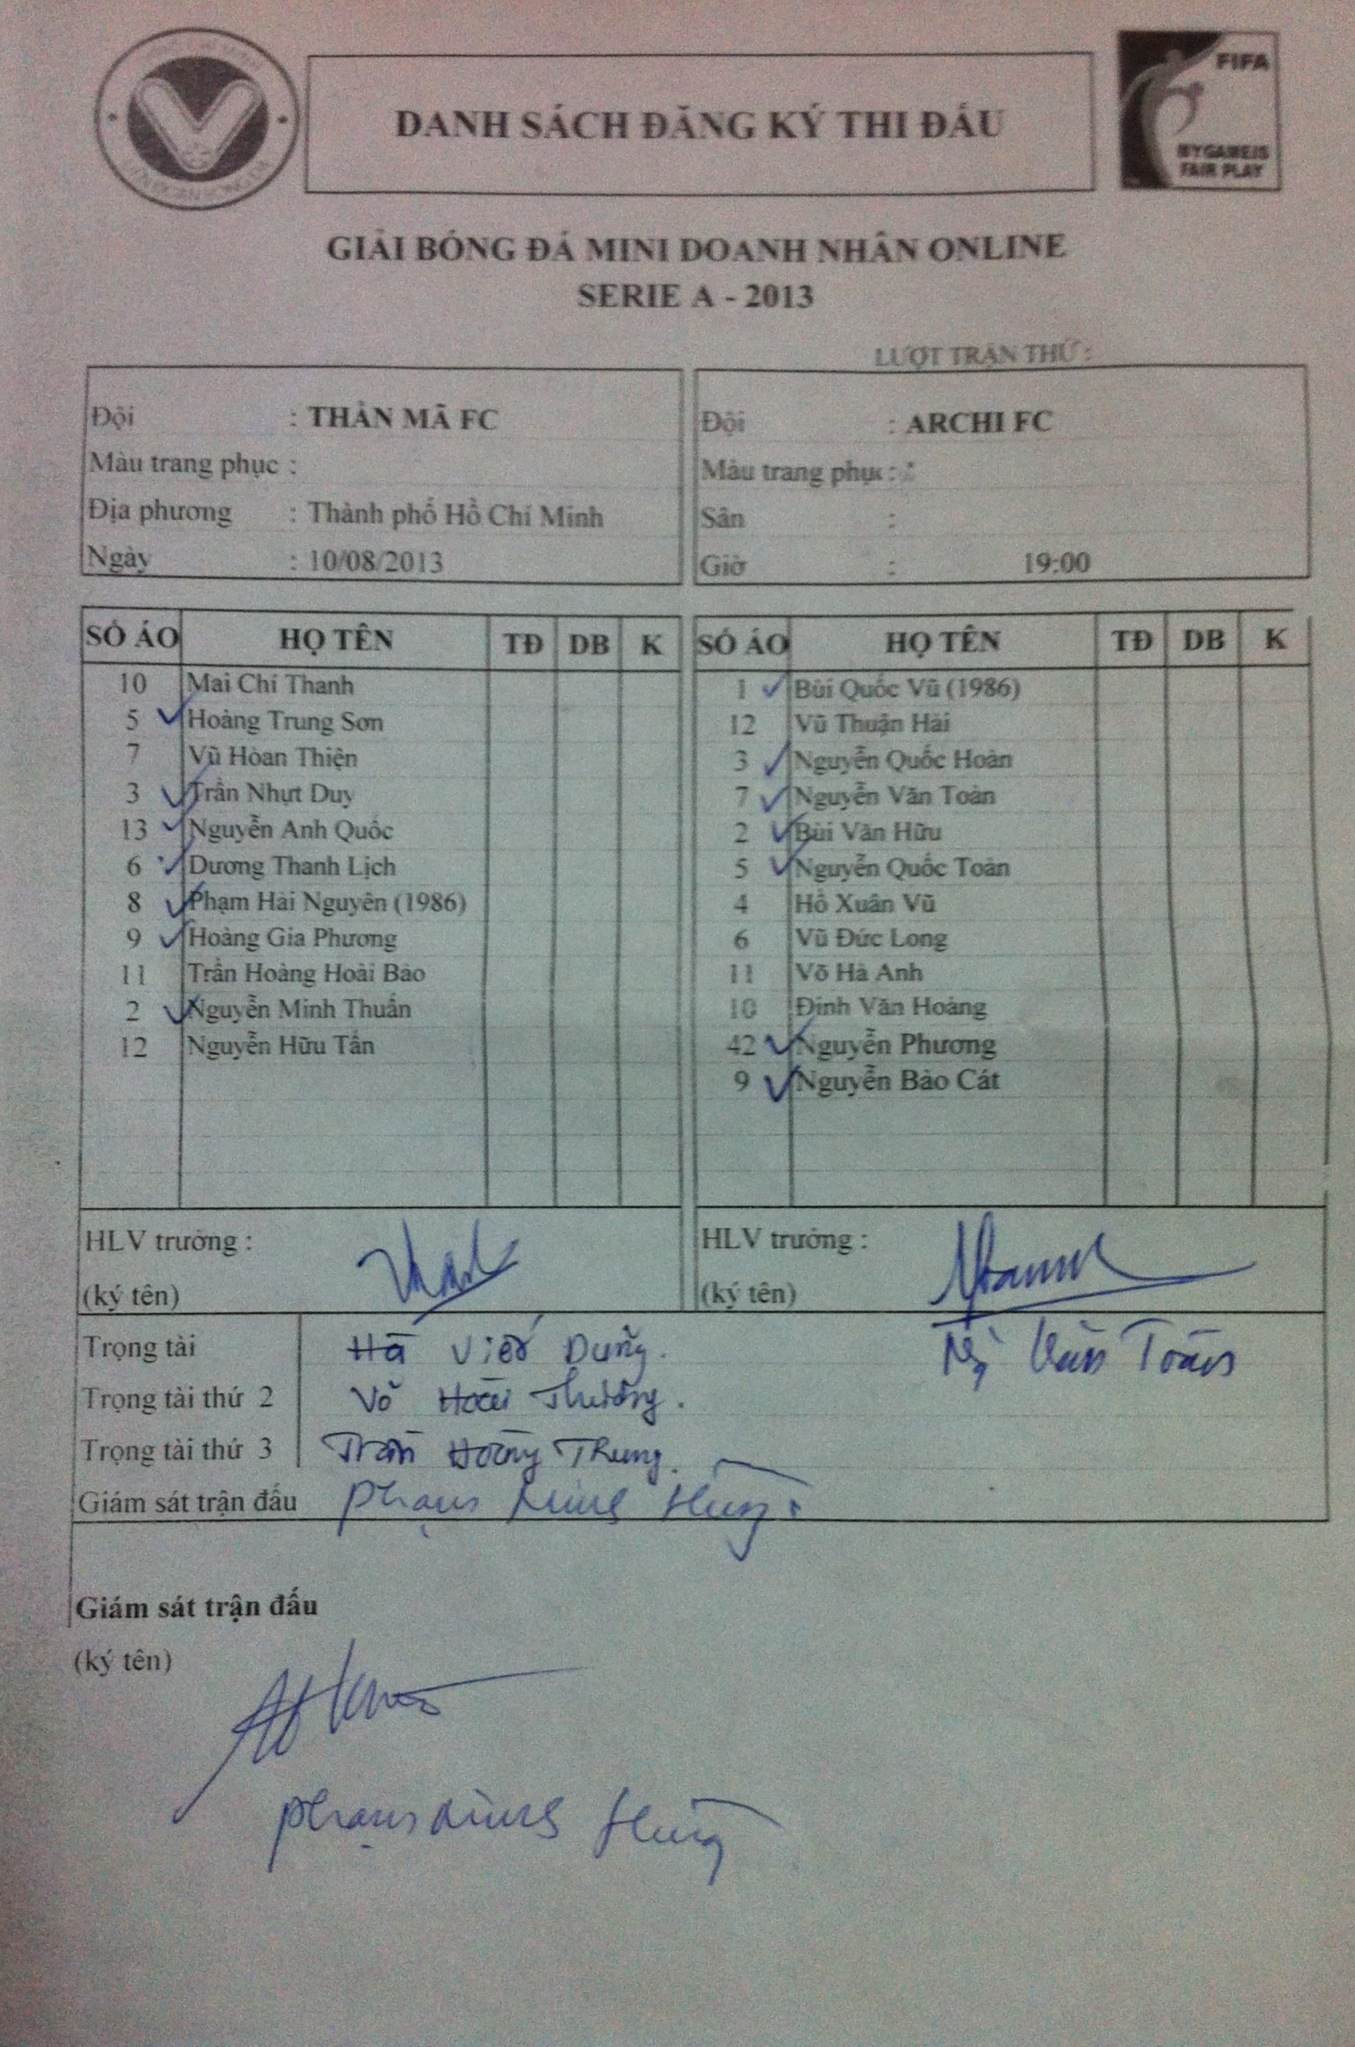 DANH SÁCH ĐĂNG KÝ THI ĐẤU
FIFA
MY GAME IS
FAIR PLAY
GIẢI BÓNG ĐÁ MINI DOANH NHÂN ONLINE
SERIE A - 2013
LƯỢT TRẬN THỨ :
Đội : THẦN MÃ FC
Màu trang phục :
Địa phương : Thành phố Hồ Chí Minh
Ngày : 10/08/2013
Đội : ARCHI FC
Màu trang phục :
Sân :
Giờ : 19:00
SỐ ÁO HỌ TÊN TĐ DB K
10 Mai Chí Thanh
5 Hoàng Trung Sơn
7 Vũ Hòan Thiện
3 Trần Nhựt Duy
13 Nguyễn Anh Quốc
6 Dương Thanh Lịch
8 Phạm Hải Nguyên (1986)
9 Hoàng Gia Phương
11 Trần Hoàng Hoài Bảo
2 Nguyễn Minh Thuấn
12 Nguyễn Hữu Tấn
SỐ ÁO HỌ TÊN TĐ DB K
1 Bùi Quốc Vũ (1986)
12 Vũ Thuận Hải
3 Nguyễn Quốc Hoàn
7 Nguyễn Văn Toàn
2 Bùi Văn Hữu
5 Nguyễn Quốc Toàn
4 Hồ Xuân Vũ
6 Vũ Đức Long
11 Võ Hà Anh
10 Đinh Văn Hoàng
42 Nguyễn Phương
9 Nguyễn Bảo Cát
HLV trưởng :
(ký tên)
HLV trưởng :
(ký tên)
Ng Văn Toàn
Trọng tài Hà Việt Dũng.
Trọng tài thứ 2 Võ Hoài Thương.
Trọng tài thứ 3 Trần Hoàng Trung.
Giám sát trận đấu Phạm Hùng
Giám sát trận đấu
(ký tên)
Phạm Hùng